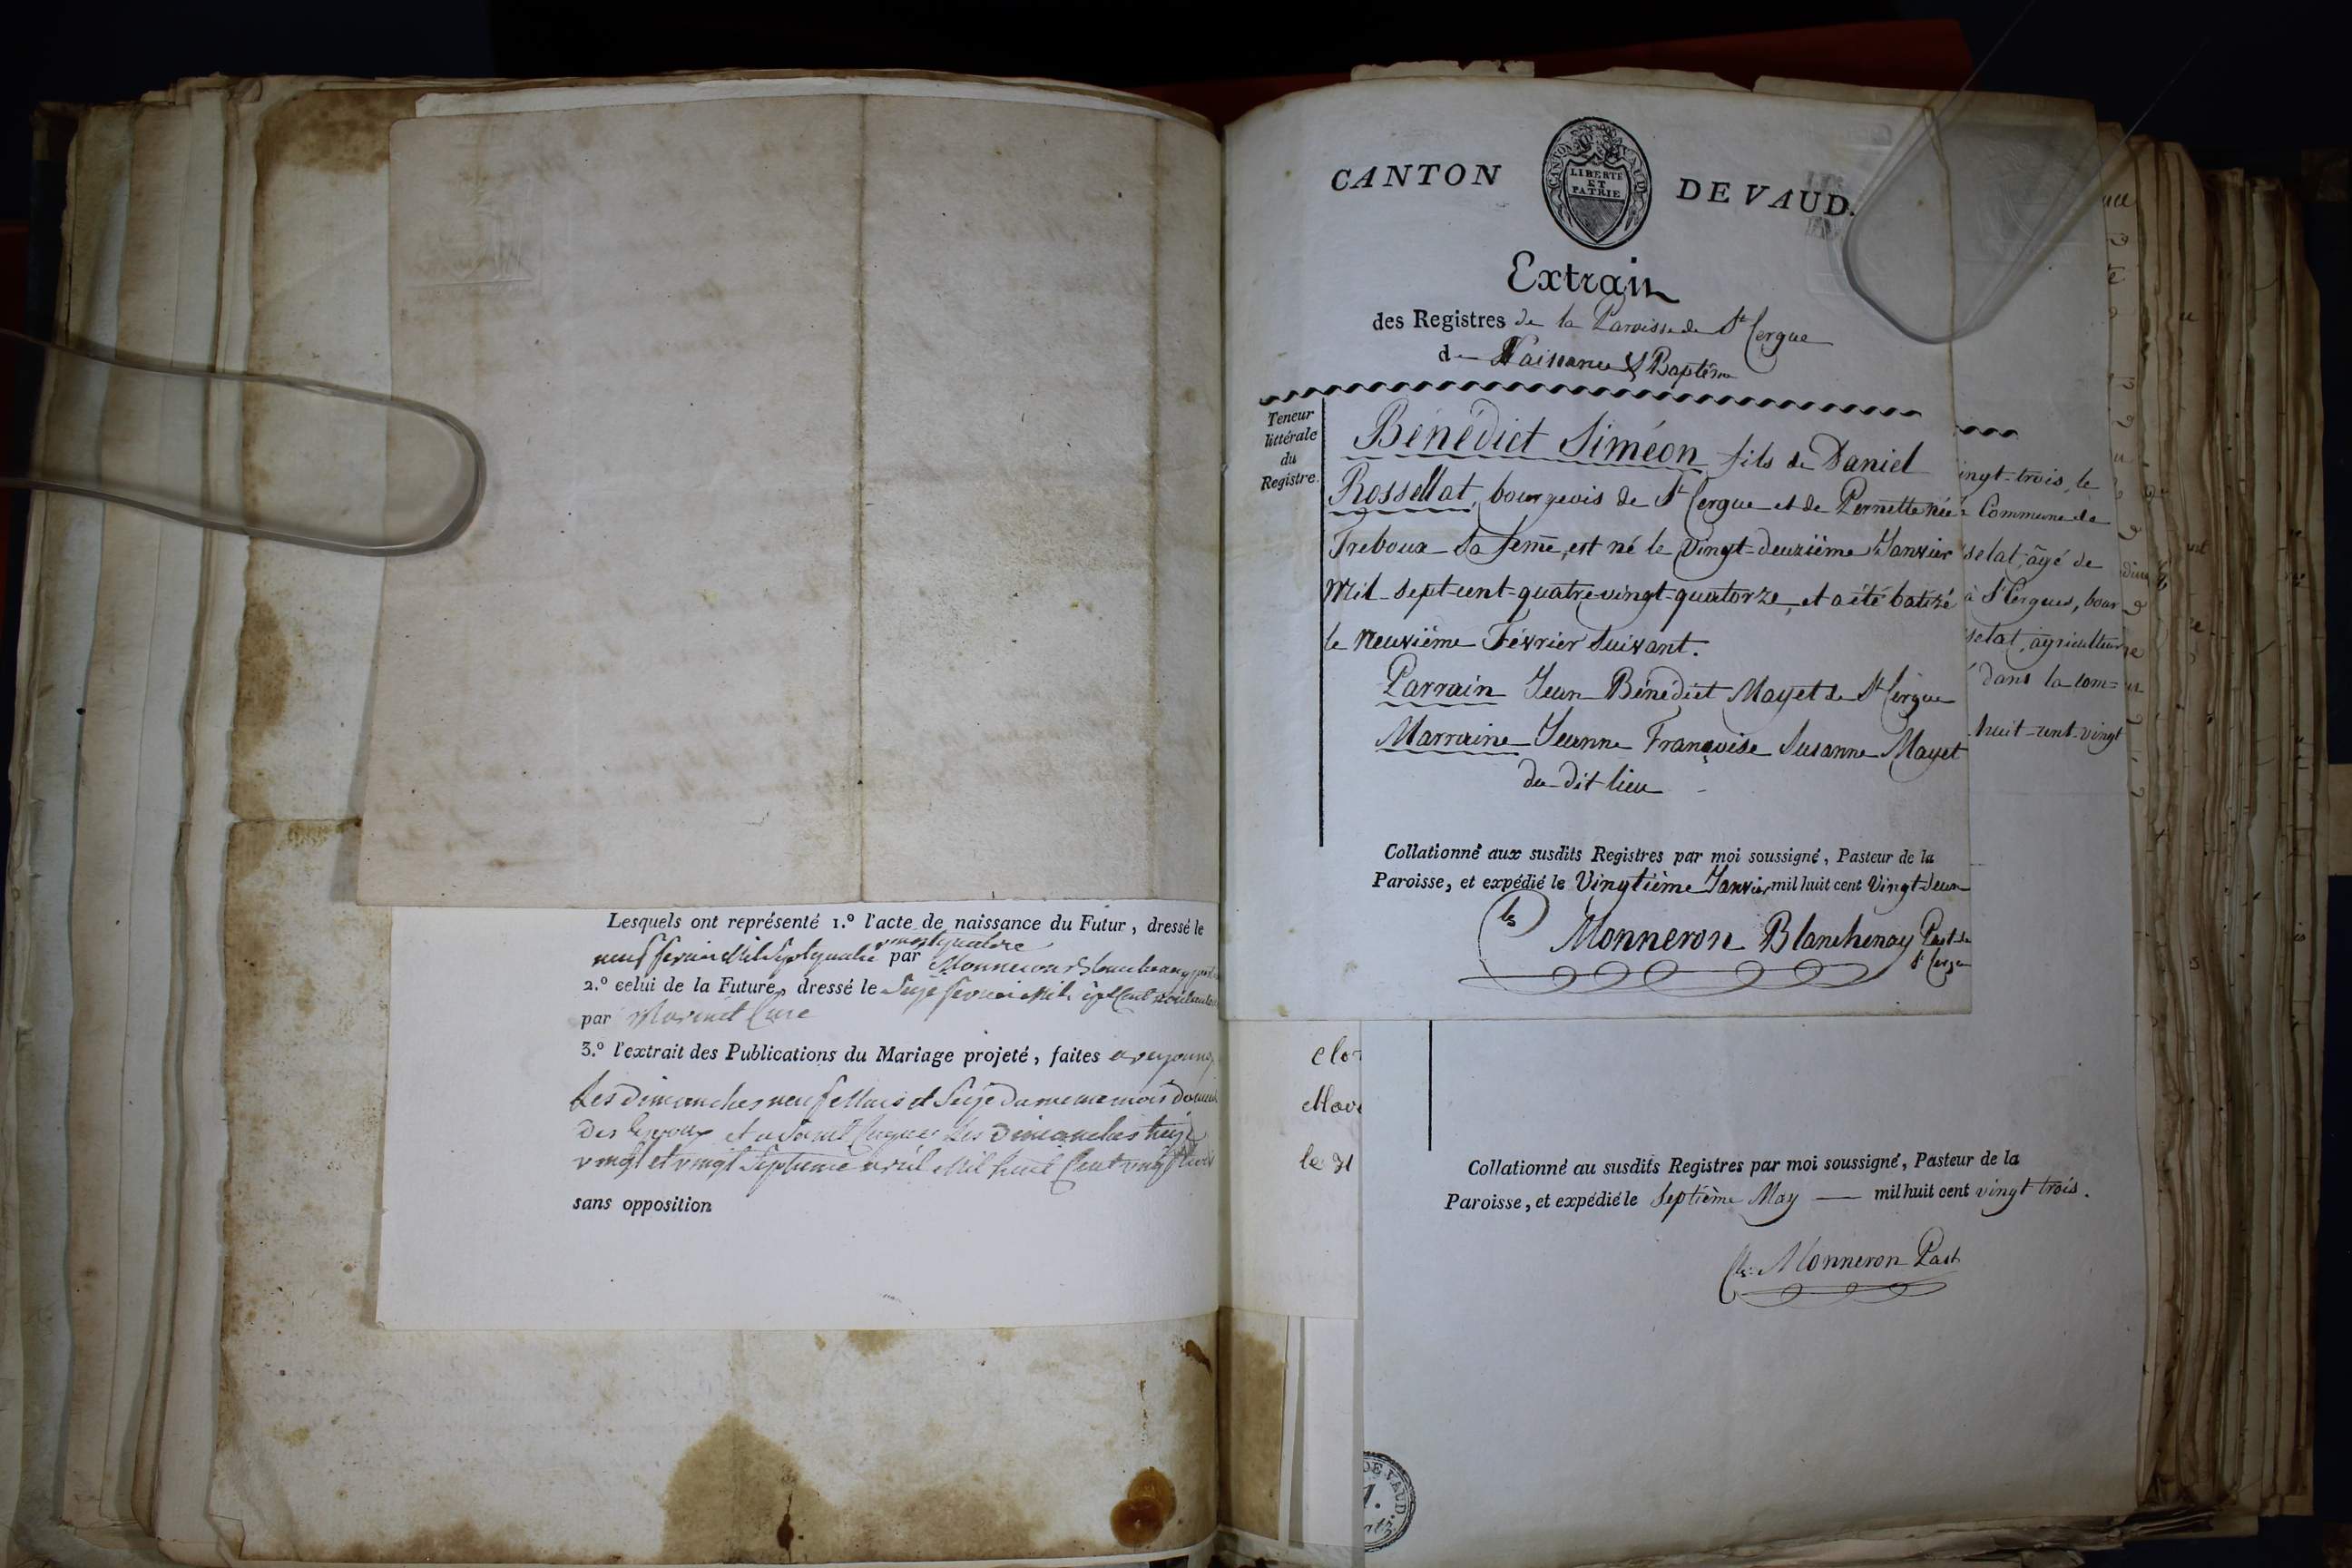 Lesquels ont représenté 1.º l'acte de naissance du Futur, dressé le
neuf fevrier Mil Sept quatre vingt quatorze par Monneron Blanchenay
2.º celui de la Future, dressé le Seize fevrier Mil sept Cent
par Curé
3.º l'extrait des Publications du Mariage projeté, faites
les dimanches neuf et Seize du meme mois
des Epoux et a Saint Cergues les dimanches treize
vingt et vingt Septieme avril Mil huit Cent vingt trois
sans opposition
CANTON DE VAUD.
CANTON DE VAUD
LIBERTÉ
ET
PATRIE
Extrait
des Registres de la Paroisse de St Cergue
de Naissance & Baptême
Teneur
littérale
du
Registre.
Bénédict Siméon fils de Daniel
Rossellat, bourgeois de St Cergue et de Pernette née
Treboux sa feme, est né le Vingt-deuxième Janvier
Mil-sept-cent-quatre-vingt-quatorze, et a été batisé
le Neuvième Février Suivant.
Parrain Jean Bénédict Mayet de St Cergue
Marraine Jeanne Françoise Susanne Mayet
du dit lieu
Collationné aux susdits Registres par moi soussigné, Pasteur de la
Paroisse, et expédié le Vingtième Janvier mil huit cent Vingt-deux
Monneron Blanchenay Past. de
St Cergue
ingt-trois, le
Commune de
selat, âgé de
à St Cergues, bour
selat, agriculteur
dans la com=
huit-cent-vingt
le 31
Collationné au susdits Registres par moi soussigné, Pasteur de la
Paroisse, et expédié le Septième May — mil huit cent vingt trois.
Monneron Past.
DE VAUD.